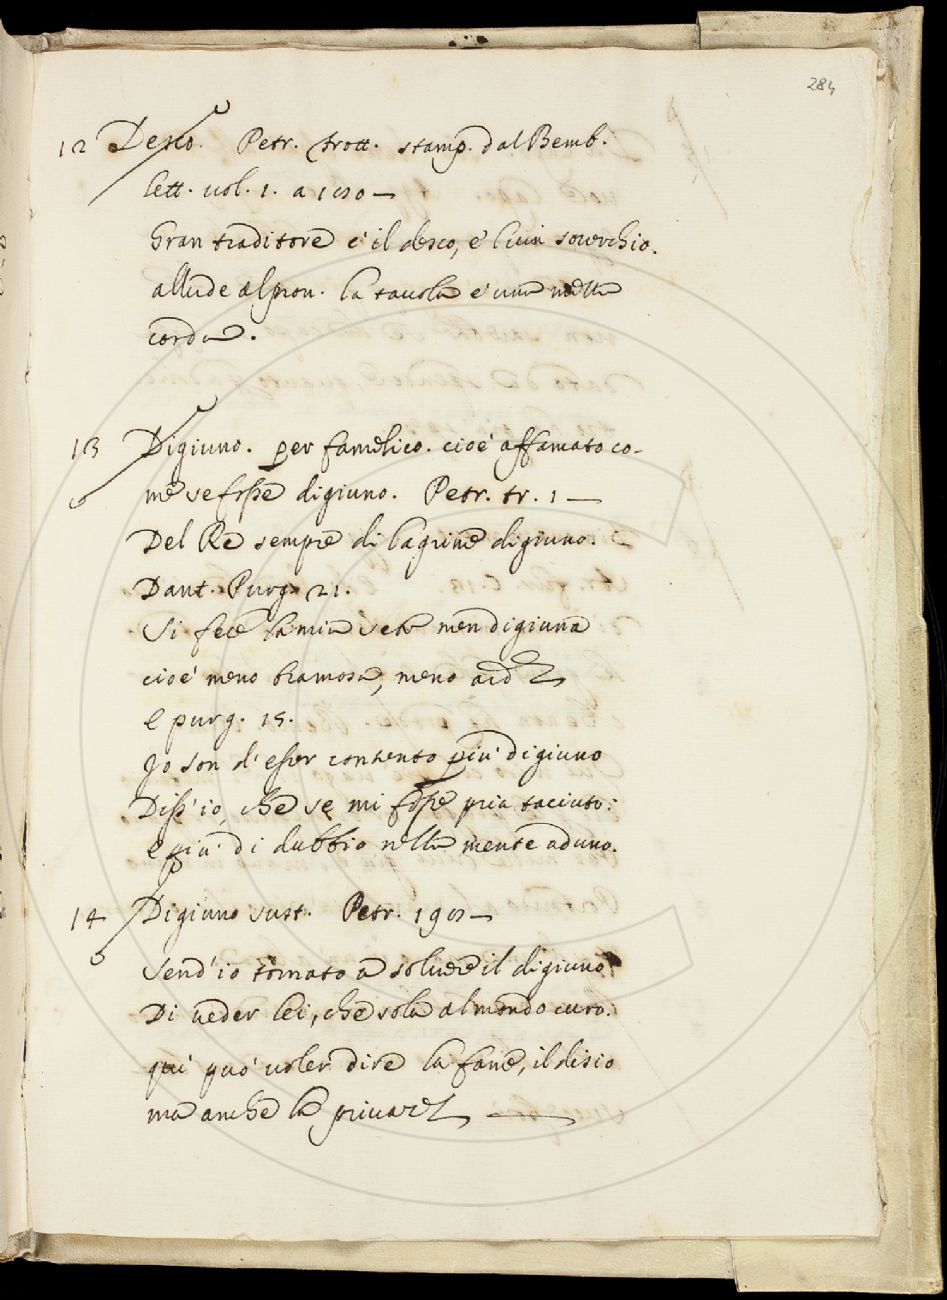 284
12 Desco. Petr. frott. stamp. dal Bemb.
lett. vol. 1. a 1 —
Gran traditore è il desco, e'l vin soverchio.
allude al prov. la tavola è una mezza
corda.
13 Digiuno. per famelico. cioè affamato co-
me se fosse digiuno. Petr. tr. 1 —
Del Re sempre di lagrime digiuno. e
Dant. Purg. 21.
Si fece la mia sete men digiuna
cioè meno bramosa, meno
e purg. 15.
Jo son d'esser contento più digiuno
Diss'io, che se mi fosse pria taciuto:
e più di dubbio nella mente aduno.
14 Digiuno sust. Petr. —
Send'io tornato a solvere il digiuno
Di veder lei, che sola al mondo curo.
qui può voler dire la fame, il disio
ma anche la —